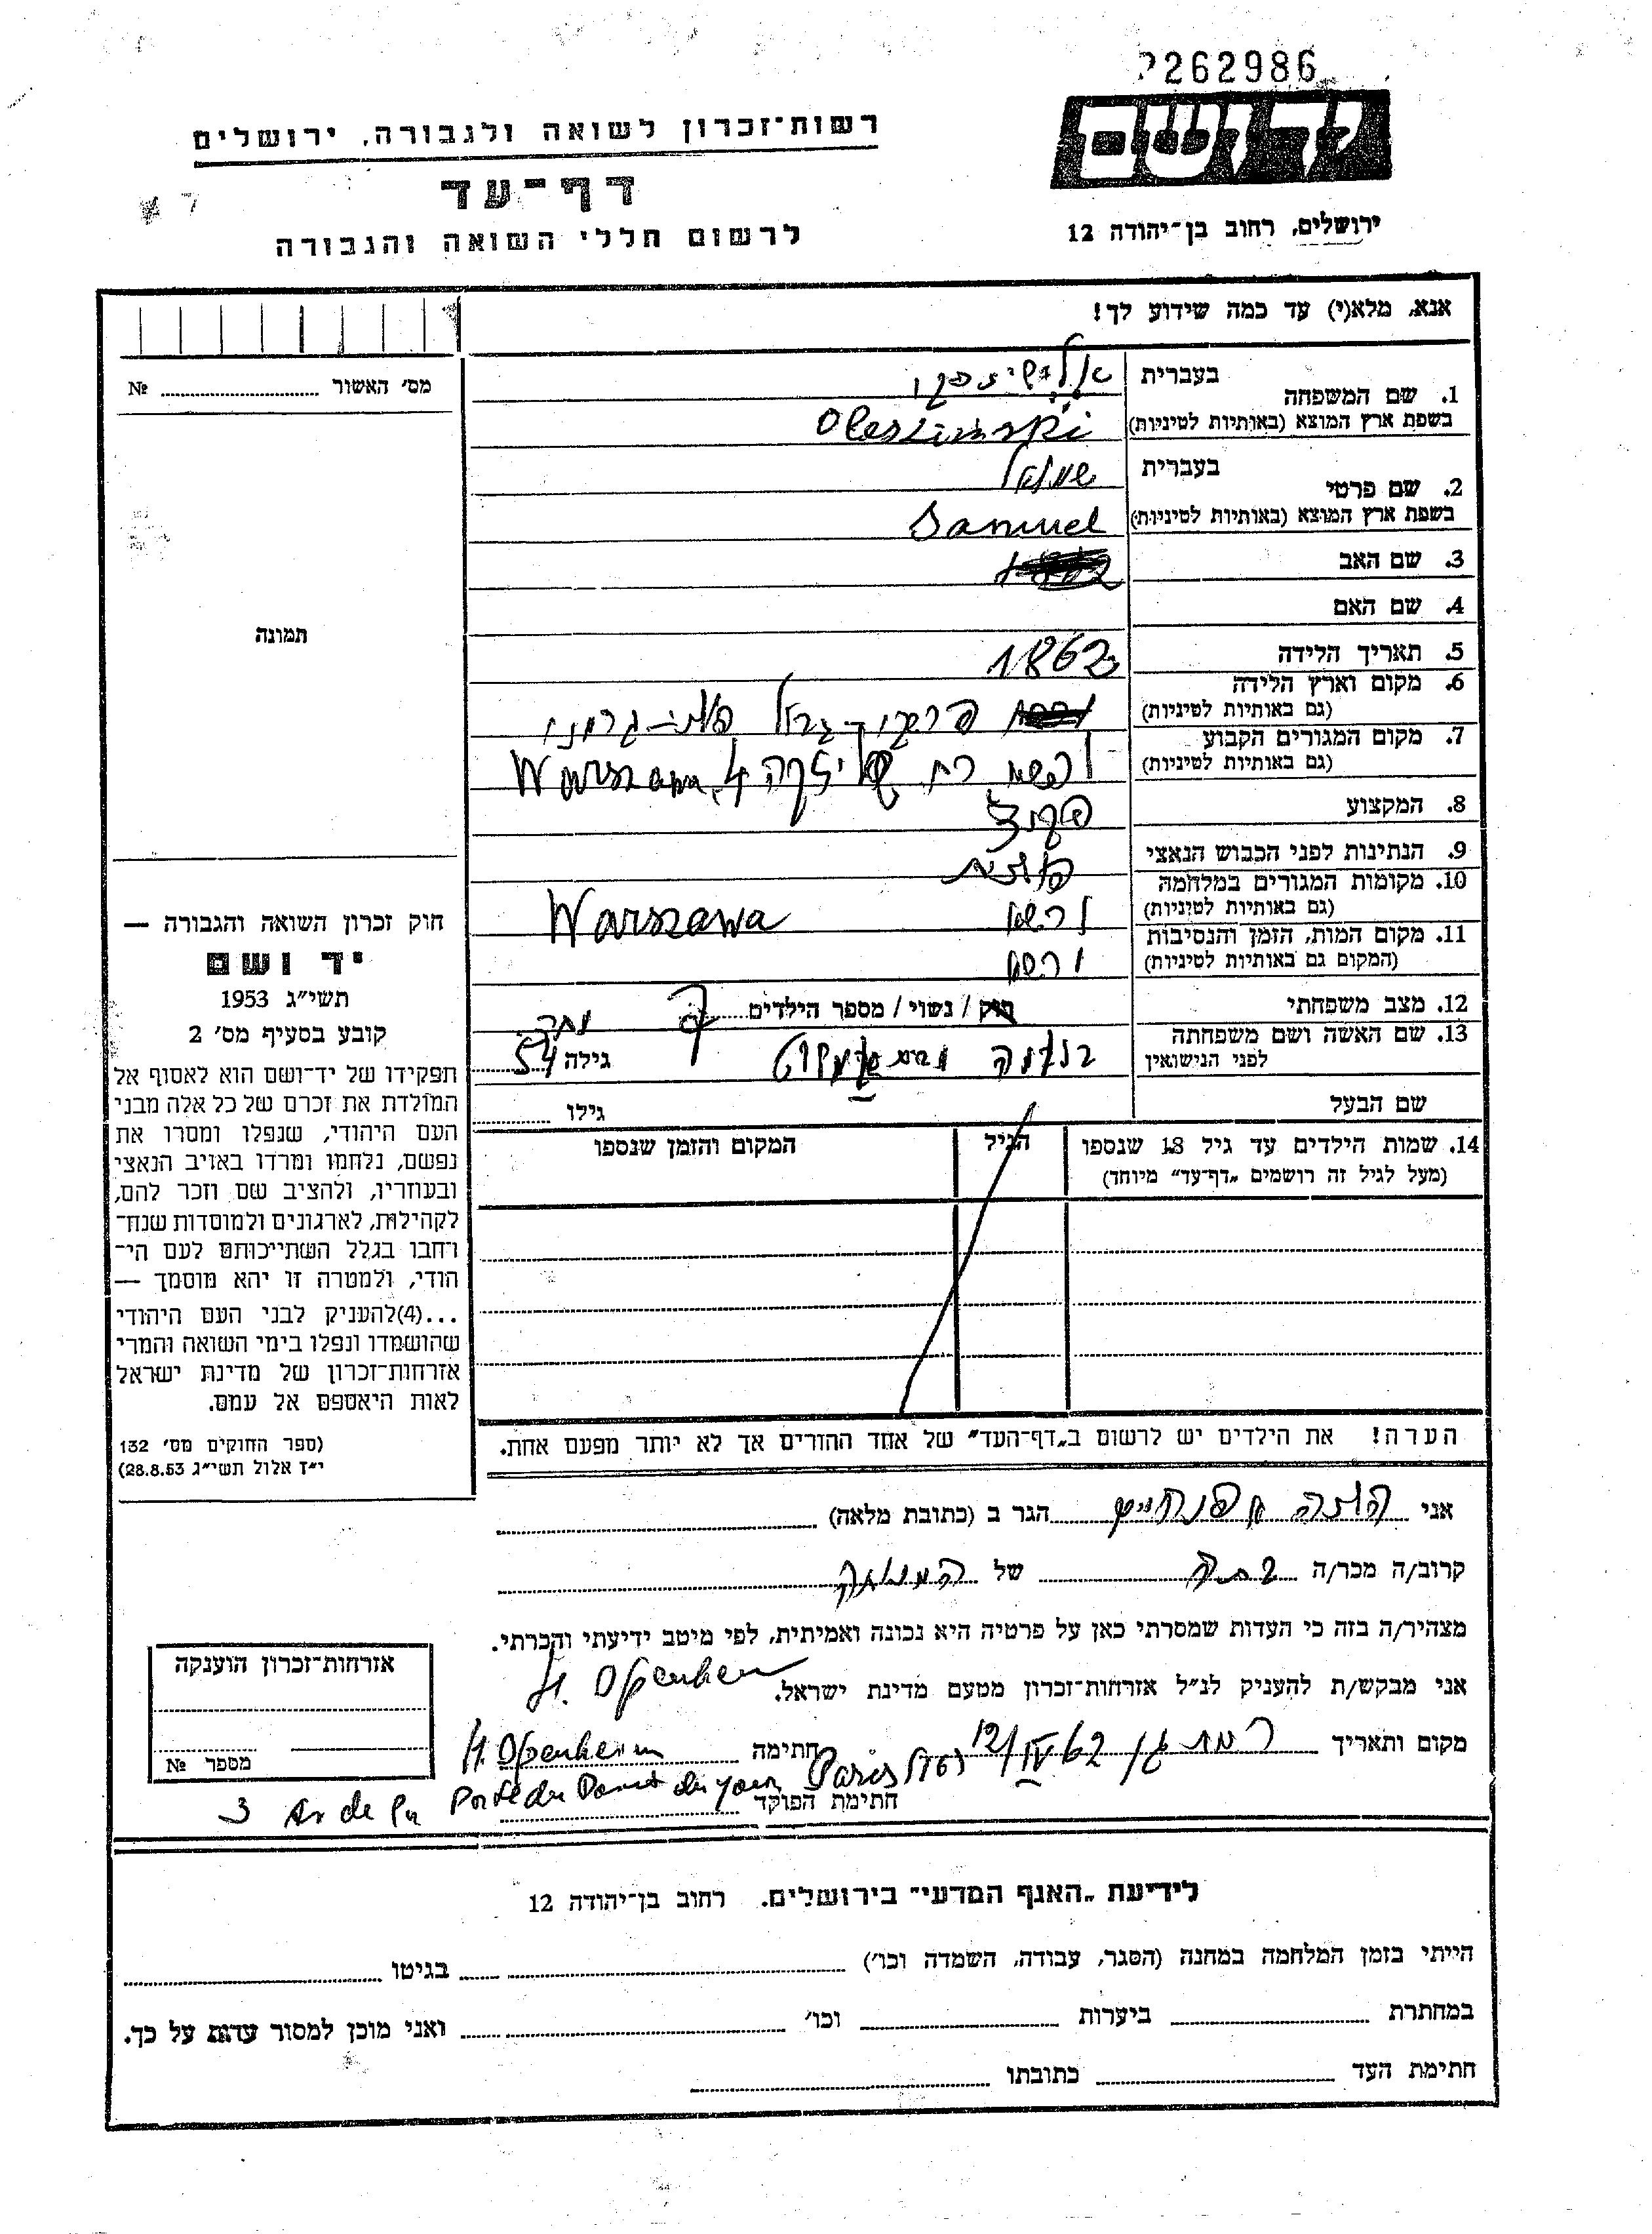 262986
יד ושם
רשות־זכרון לשואה ולגבורה, ירושלים
דף־עד
7
לרשום חללי השואה והגבורה
ירושלים, רחוב בן־יהודה 12
אנא, מלא(י) עד כמה שידוע לך!
מס׳ האשור № 
תמונה
1. שם המשפחה
בעברית
בשפת ארץ המוצא (באותיות לטיניות) Oleszinski
2. שם פרטי
בעברית שמואל
בשפת ארץ המוצא (באותיות לטיניות) Samuel
3. שם האב
4. שם האם
5. תאריך הלידה 1862
6. מקום וארץ הלידה
(גם באותיות לטיניות)
7. מקום המגורים הקבוע
(גם באותיות לטיניות) ורשה רח 4 Warszawa
8. המקצוע
9. הנתינות לפני הכבוש הנאצי פולנית
10. מקומות המגורים במלחמה
(גם באותיות לטיניות) ורשה Warszawa
11. מקום המות, הזמן והנסיבות
(המקום גם באותיות לטיניות) ורשה
12. מצב משפחתי רוק / נשוי / מספר הילדים
13. שם האשה ושם משפחתה
לפני הנישואין גילה 54
שם הבעל גילו
14. שמות הילדים עד גיל 18 שנספו הגיל המקום והזמן שנספו
(מעל לגיל זה רושמים „דף־עד״ מיוחד)
הערה! את הילדים יש לרשום ב„דף־העד״ של אחד ההורים אך לא יותר מפעם אחת.
חוק זכרון השואה והגבורה —
יד ושם
תשי״ג 1953
קובע בסעיף מס׳ 2
תפקידו של יד־ושם הוא לאסוף אל
המולדת את זכרם של כל אלה מבני
העם היהודי, שנפלו ומסרו את
נפשם, נלחמו ומרדו באויב הנאצי
ובעוזריו, ולהציב שם וזכר להם,
לקהילות, לארגונים ולמוסדות שנח־
רחבו בגלל השתייכותם לעם הי־
הודי, ולמטרה זו יהא מוסמך —
...(4)להעניק לבני העם היהודי
שהושמדו ונפלו בימי השואה והמרי
אזרחות־זכרון של מדינת ישראל
לאות היאספם אל עמם.
(ספר החוקים מס׳ 132
י״ז אלול תשי״ג 28.8.53)
אני הגר ב (כתובת מלאה)
קרוב/ה מכר/ה של
מצהיר/ה בזה כי העדות שמסרתי כאן על פרטיה היא נכונה ואמיתית, לפי מיטב ידיעתי והכרתי.
אני מבקש/ת להעניק לנ״ל אזרחות־זכרון מטעם מדינת ישראל.
מקום ותאריך רמת גן 12/IV 62 חתימה H. Openheim
חתימת הפוקד Paris
3 Av de la Porte du
אזרחות־זכרון הוענקה
מספר №
לידיעת „האגף המדעי״ בירושלים. רחוב בן־יהודה 12
הייתי בזמן המלחמה במחנה (הסגר, עבודה, השמדה וכו׳) בגיטו
במחתרת ביערות וכו׳ ואני מוכן למסור עדות על כך.
חתימת העד כתובתו